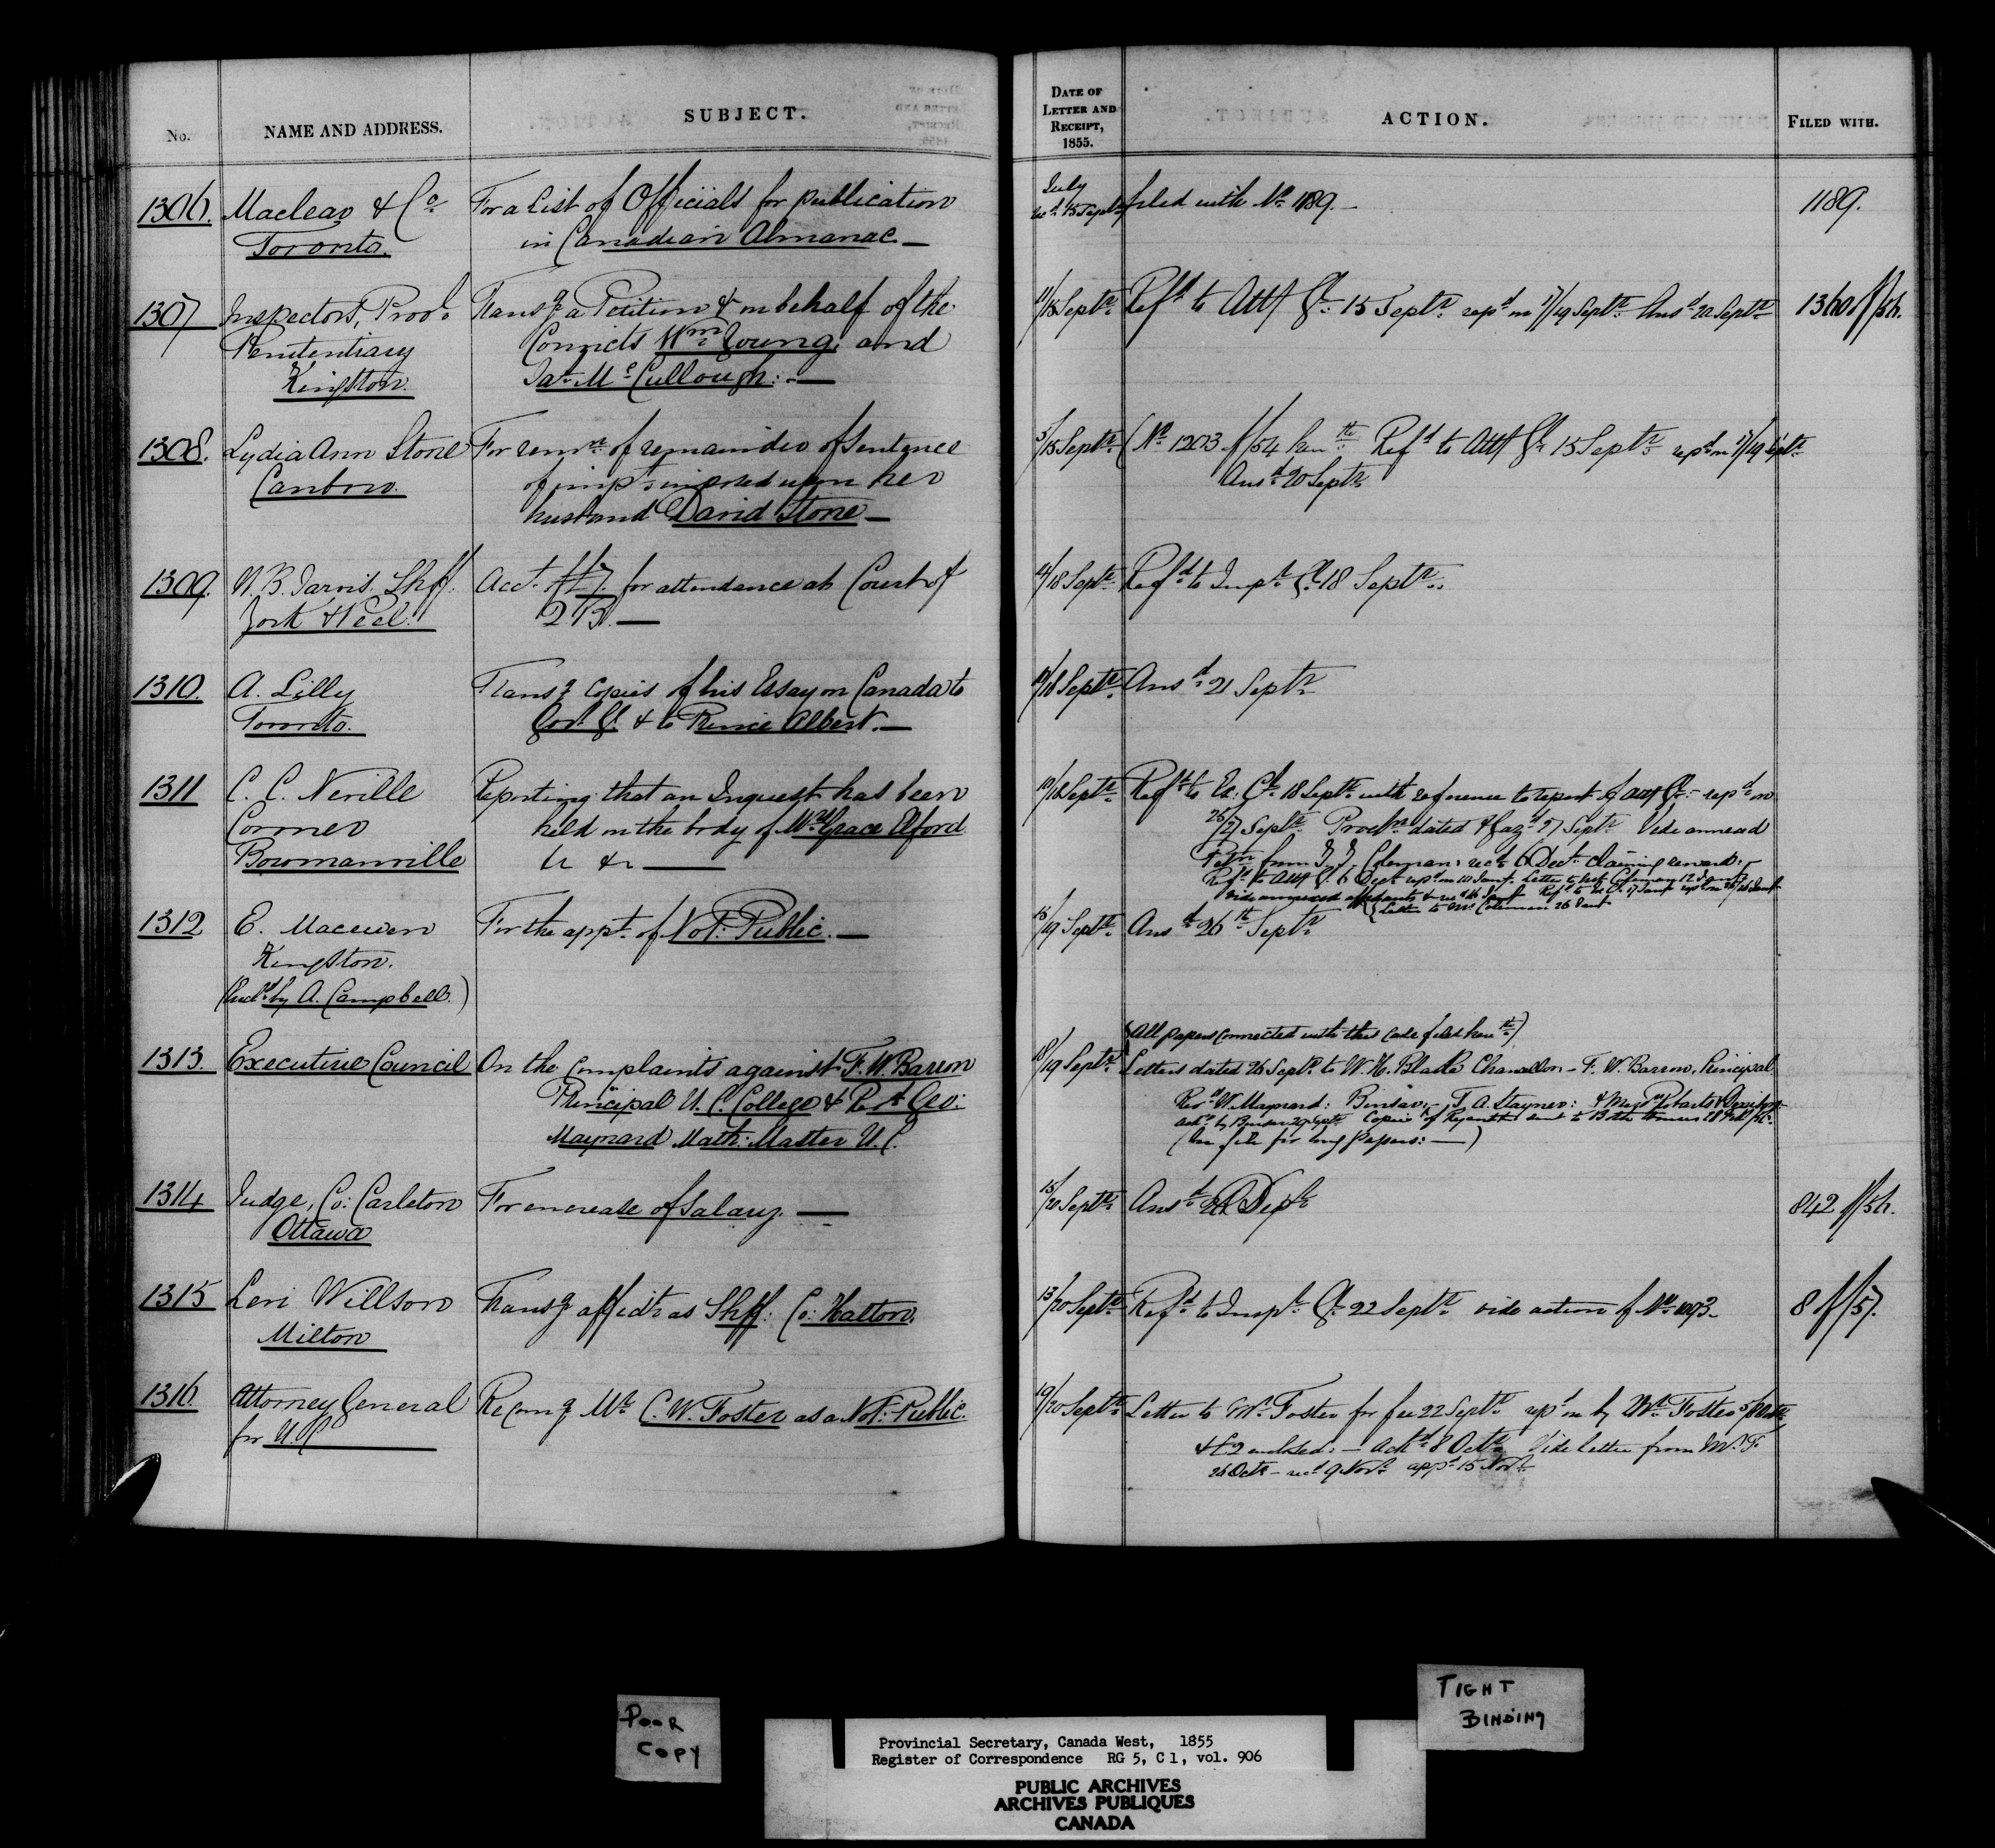 No.
NAME AND ADDRESS.
SUBJECT.
DATE OF
LETTER AND
RECEIPT,
1855.
ACTION.
FILED WITH.
1306. Maclear & Co. For a List of Officials for publication
Toronto. in Canadian Almanac. —
July
recd. 15 Septr. filed with No. 1189. —
1189.
1307 Inspectors, Provl. Transg. a Petition &c on behalf of the
Penitentiary Convicts Wm. Young, and
Kingston. Jas. McCullough: —
11/15 Septr. Refd. to Atty Gl. 15 Septr. repd. on 17/19 Septr. Ansd. 20 Septr.
1308. Lydia Ann Stone For remn. of remainder of Sentence
Canboro. of impt. imposed upon her
husband David Stone —
5/15 Septr. (No. 1203 of/54 herewth. Refd. to Atty Gl. 15 Septr. repd. on 17/19 Septr.
Ansd. 20 Septr.
1309. W. B. Jarvis, Shff. Acct. £ for attendance at Court of
York & Peel. Q.B. —
14/18 Septr. Refd. to Inspr. Gl. 18 Septr.
1310. A. Lilly Transg. Copies of his Essay on Canada to
Toronto. Govr. Gl. & to Prince Albert. —
18 Septr. Ansd. 21 Septr.
1311 C. C. Neville Reporting that an Inquest has been
Coroner held on the body of Grace Elford
Bowmanville &c &c —
18 Septr. Refd. to Ex: Cl. 18 Septr. with reference to report of Atty Gl. — repd. on
26/27 Septr. Procln. dated & Gazd. 27 Septr. Vide annexed
Petn. from Coleman: recd. 6 Decr. claiming reward: —
Refd. to Atty Gl. 6 Decr. repd. on 10 Jany. Letter to Coleman 12 Jany.
Vide annexed affidavits &c recd. 16 Jany. Refd. to Ex. C. 17 Jany. repd. on 25/26 Jany.
Letter to Mr. Coleman 26 Jany.
1312 E. Macewen For the appt. of Not: Public. —
Kingston.
(Encld. by A. Campbell.)
15/19 Septr. Ansd. 26th Septr.
1313. Executive Council On the Complaints against F. W. Barron
Principal U. C. College & Revd. Geo:
Maynard Math: Master U. C.
(All papers connected with this Case filed herewth.)
18/19 Septr. Letters dated 26 Septr. to W. H. Blake Chancellor — F. W. Barron, Principal.
Revd. W. Maynard: Bursar, — T. A. Stayner: & Messrs. Roberts & Denison.
ackd. by Bursar 29 Septr. Copies of sent to 28 Feby/56.
(See file for long Papers: —)
1314 Judge, Co: Carleton For encrease of Salary. —
Ottawa
15/20 Septr. Ansd. 22 Septr.
842 of/56.
1315 Levi Willson Transg. affidt. as Shff: Co: Halton.
Milton
13/20 Septr. Refd. to Inspr. Gl. 22 Septr. vide action of No. 1093 —
8 of/57.
1316. Attorney General Recomg. Mr. C. W. Foster as a Not: Public.
for U. C. —
19/20 Septr. Letter to Mr. Foster for fee 22 Septr. repd. on by Mr. Foster 5/8 Octr.
& £2 enclosed: — Ackd. 8 Octr. Vide letter from Mr. F.
26 Octr. — recd. 9 Novr. appd. 15 Novr.
POOR
COPY
TIGHT
BINDING
Provincial Secretary, Canada West, 1855
Register of Correspondence RG 5, C 1, vol. 906
PUBLIC ARCHIVES
ARCHIVES PUBLIQUES
CANADA